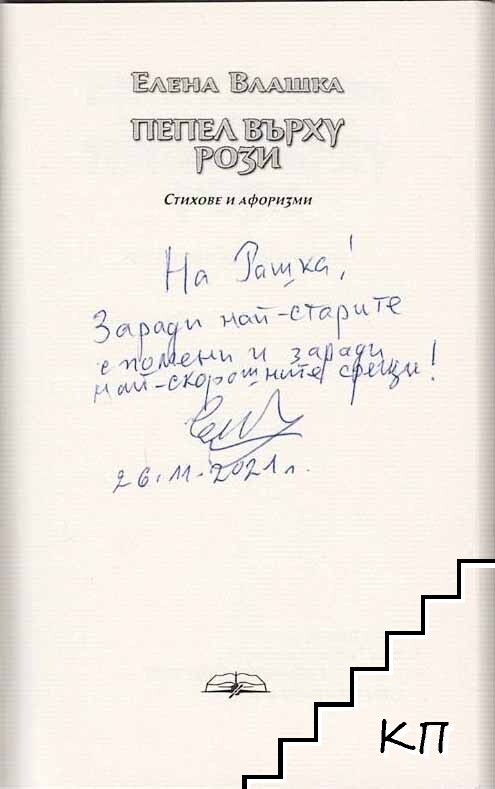 Елена Влашка
ПЕПЕЛ ВЪРХУ
РОЗИ
Стихове и афоризми
На Рашка!
Заради най-старите
спомени и заради
най-скорошните срещи!
26.11.2021 г.
КП